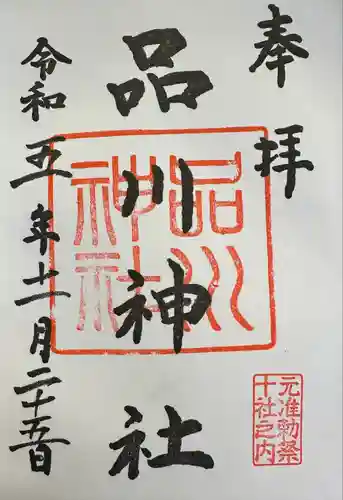 奉拝
品川神社
令和五年十一月二十五日
品川神社
元准勅祭
十社之内